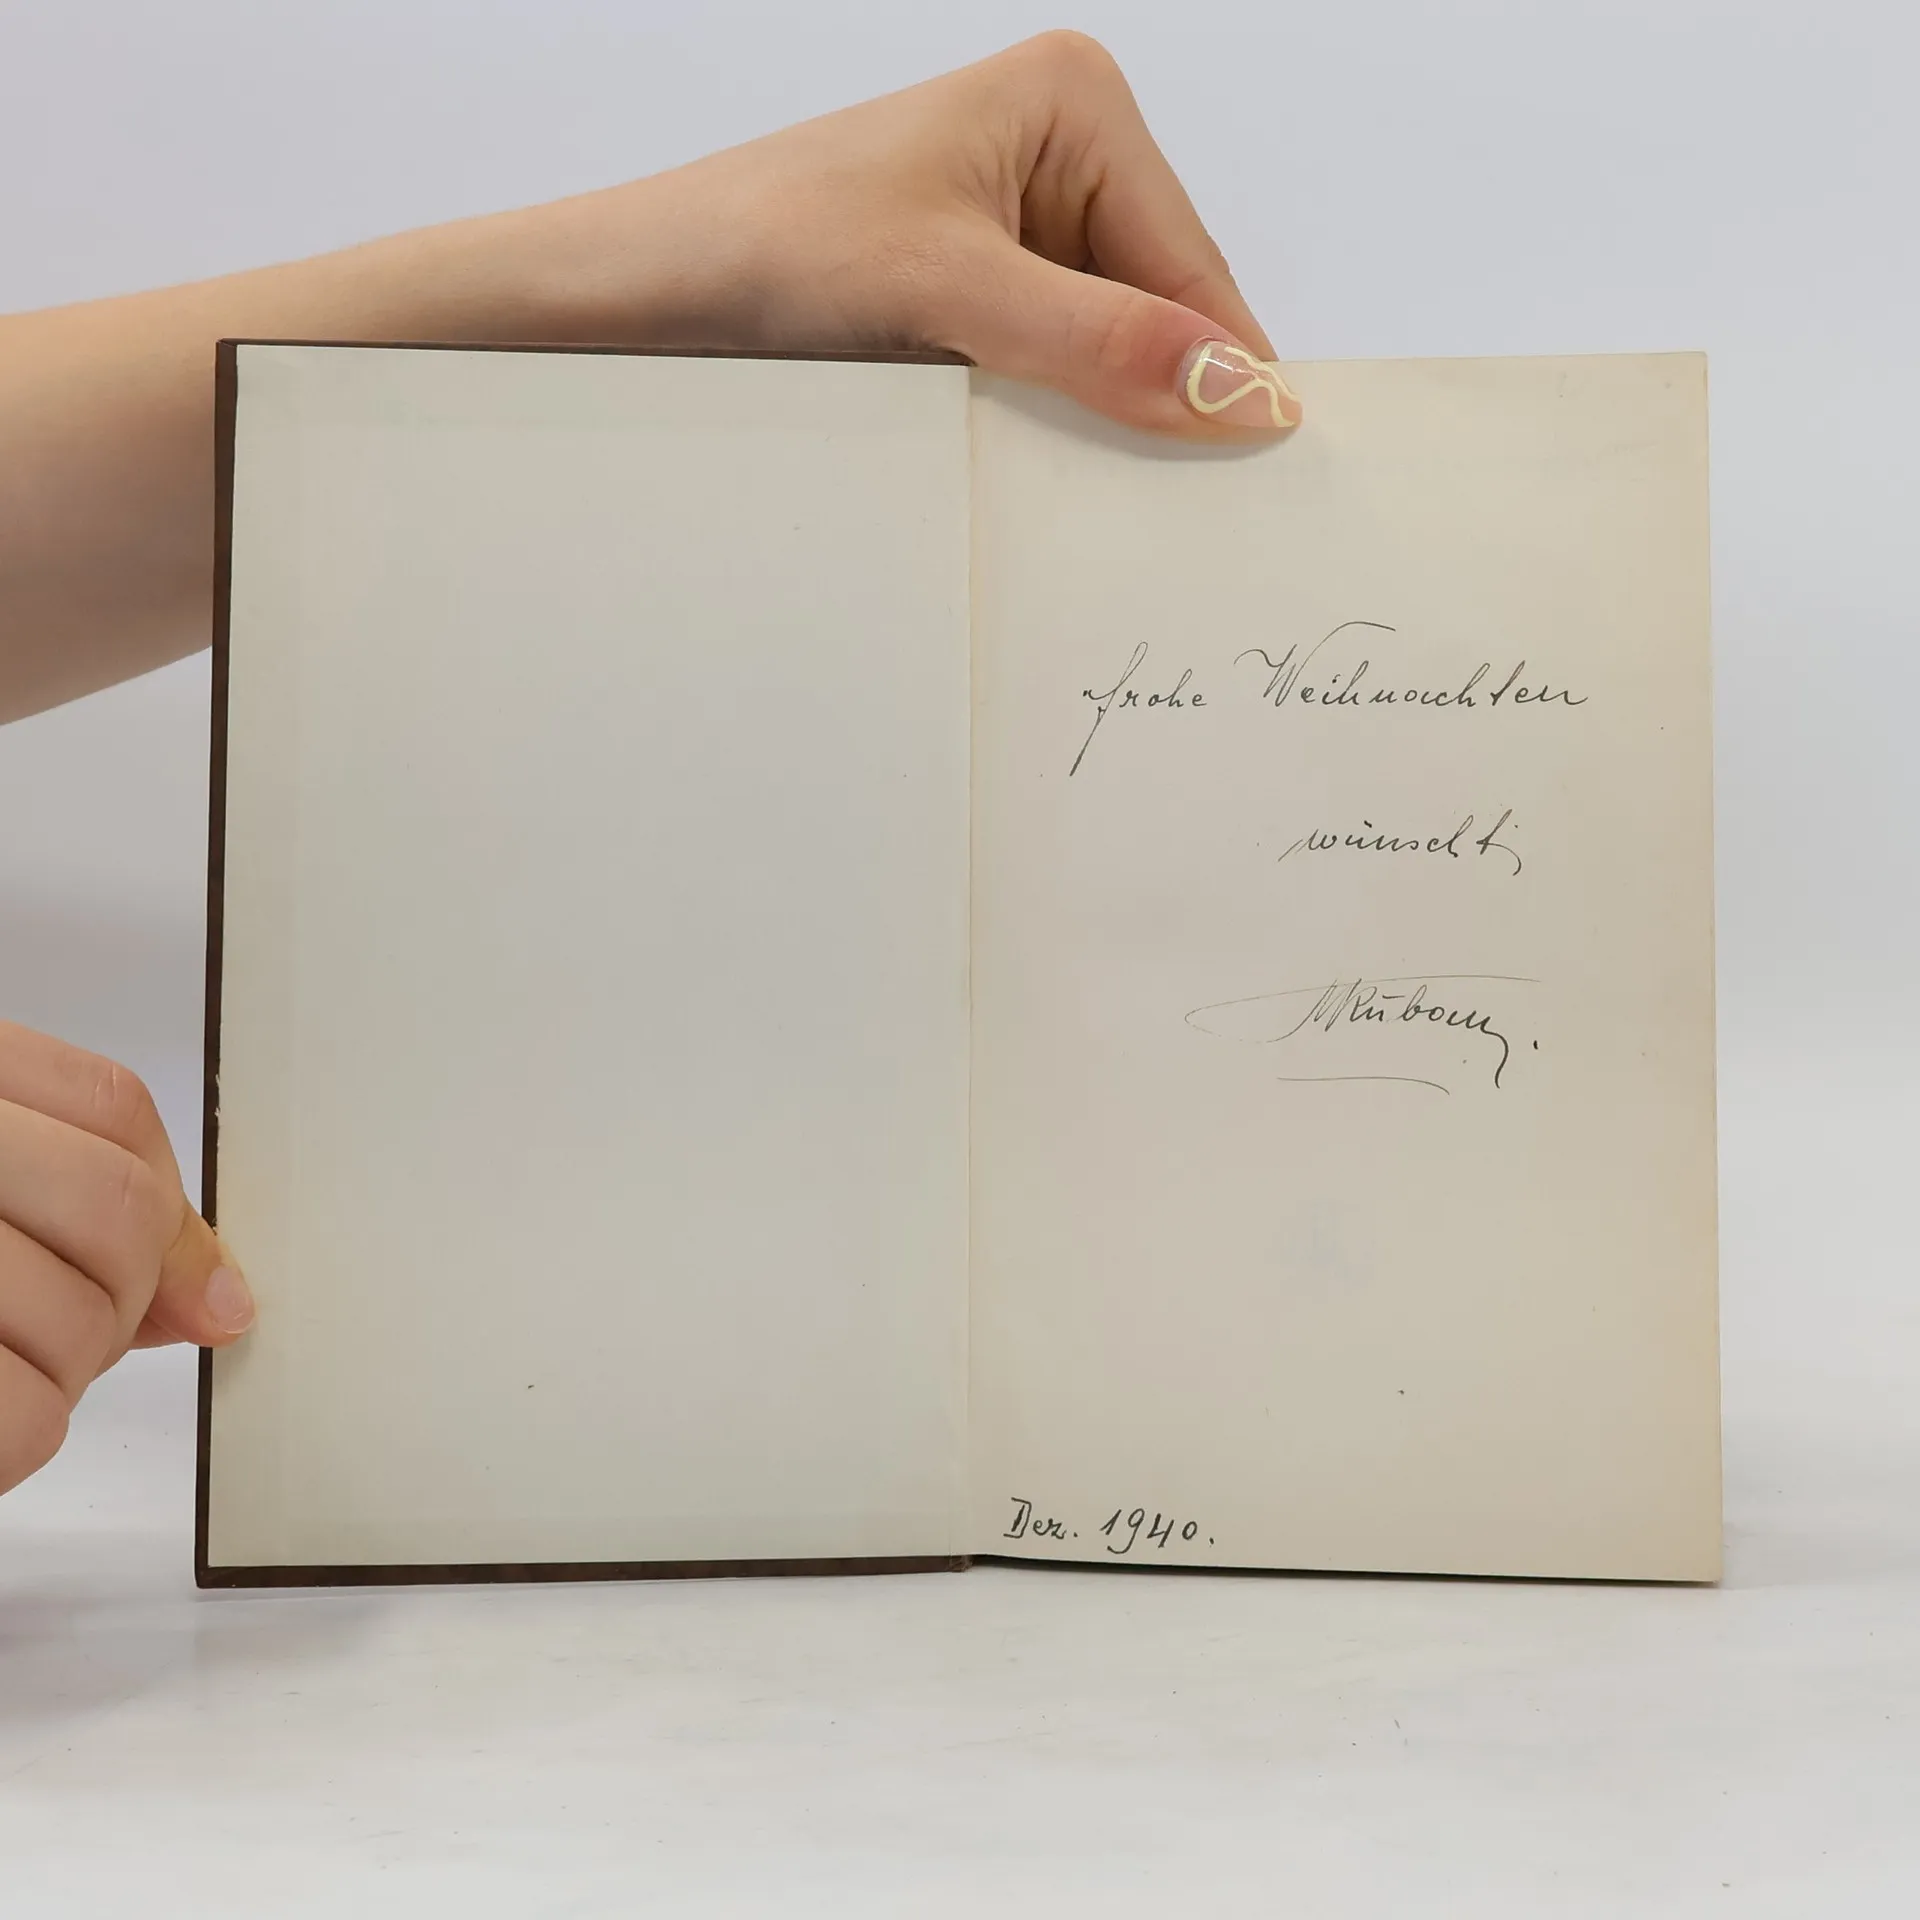 frohe Weihnachten
wünscht
Dez. 1940.